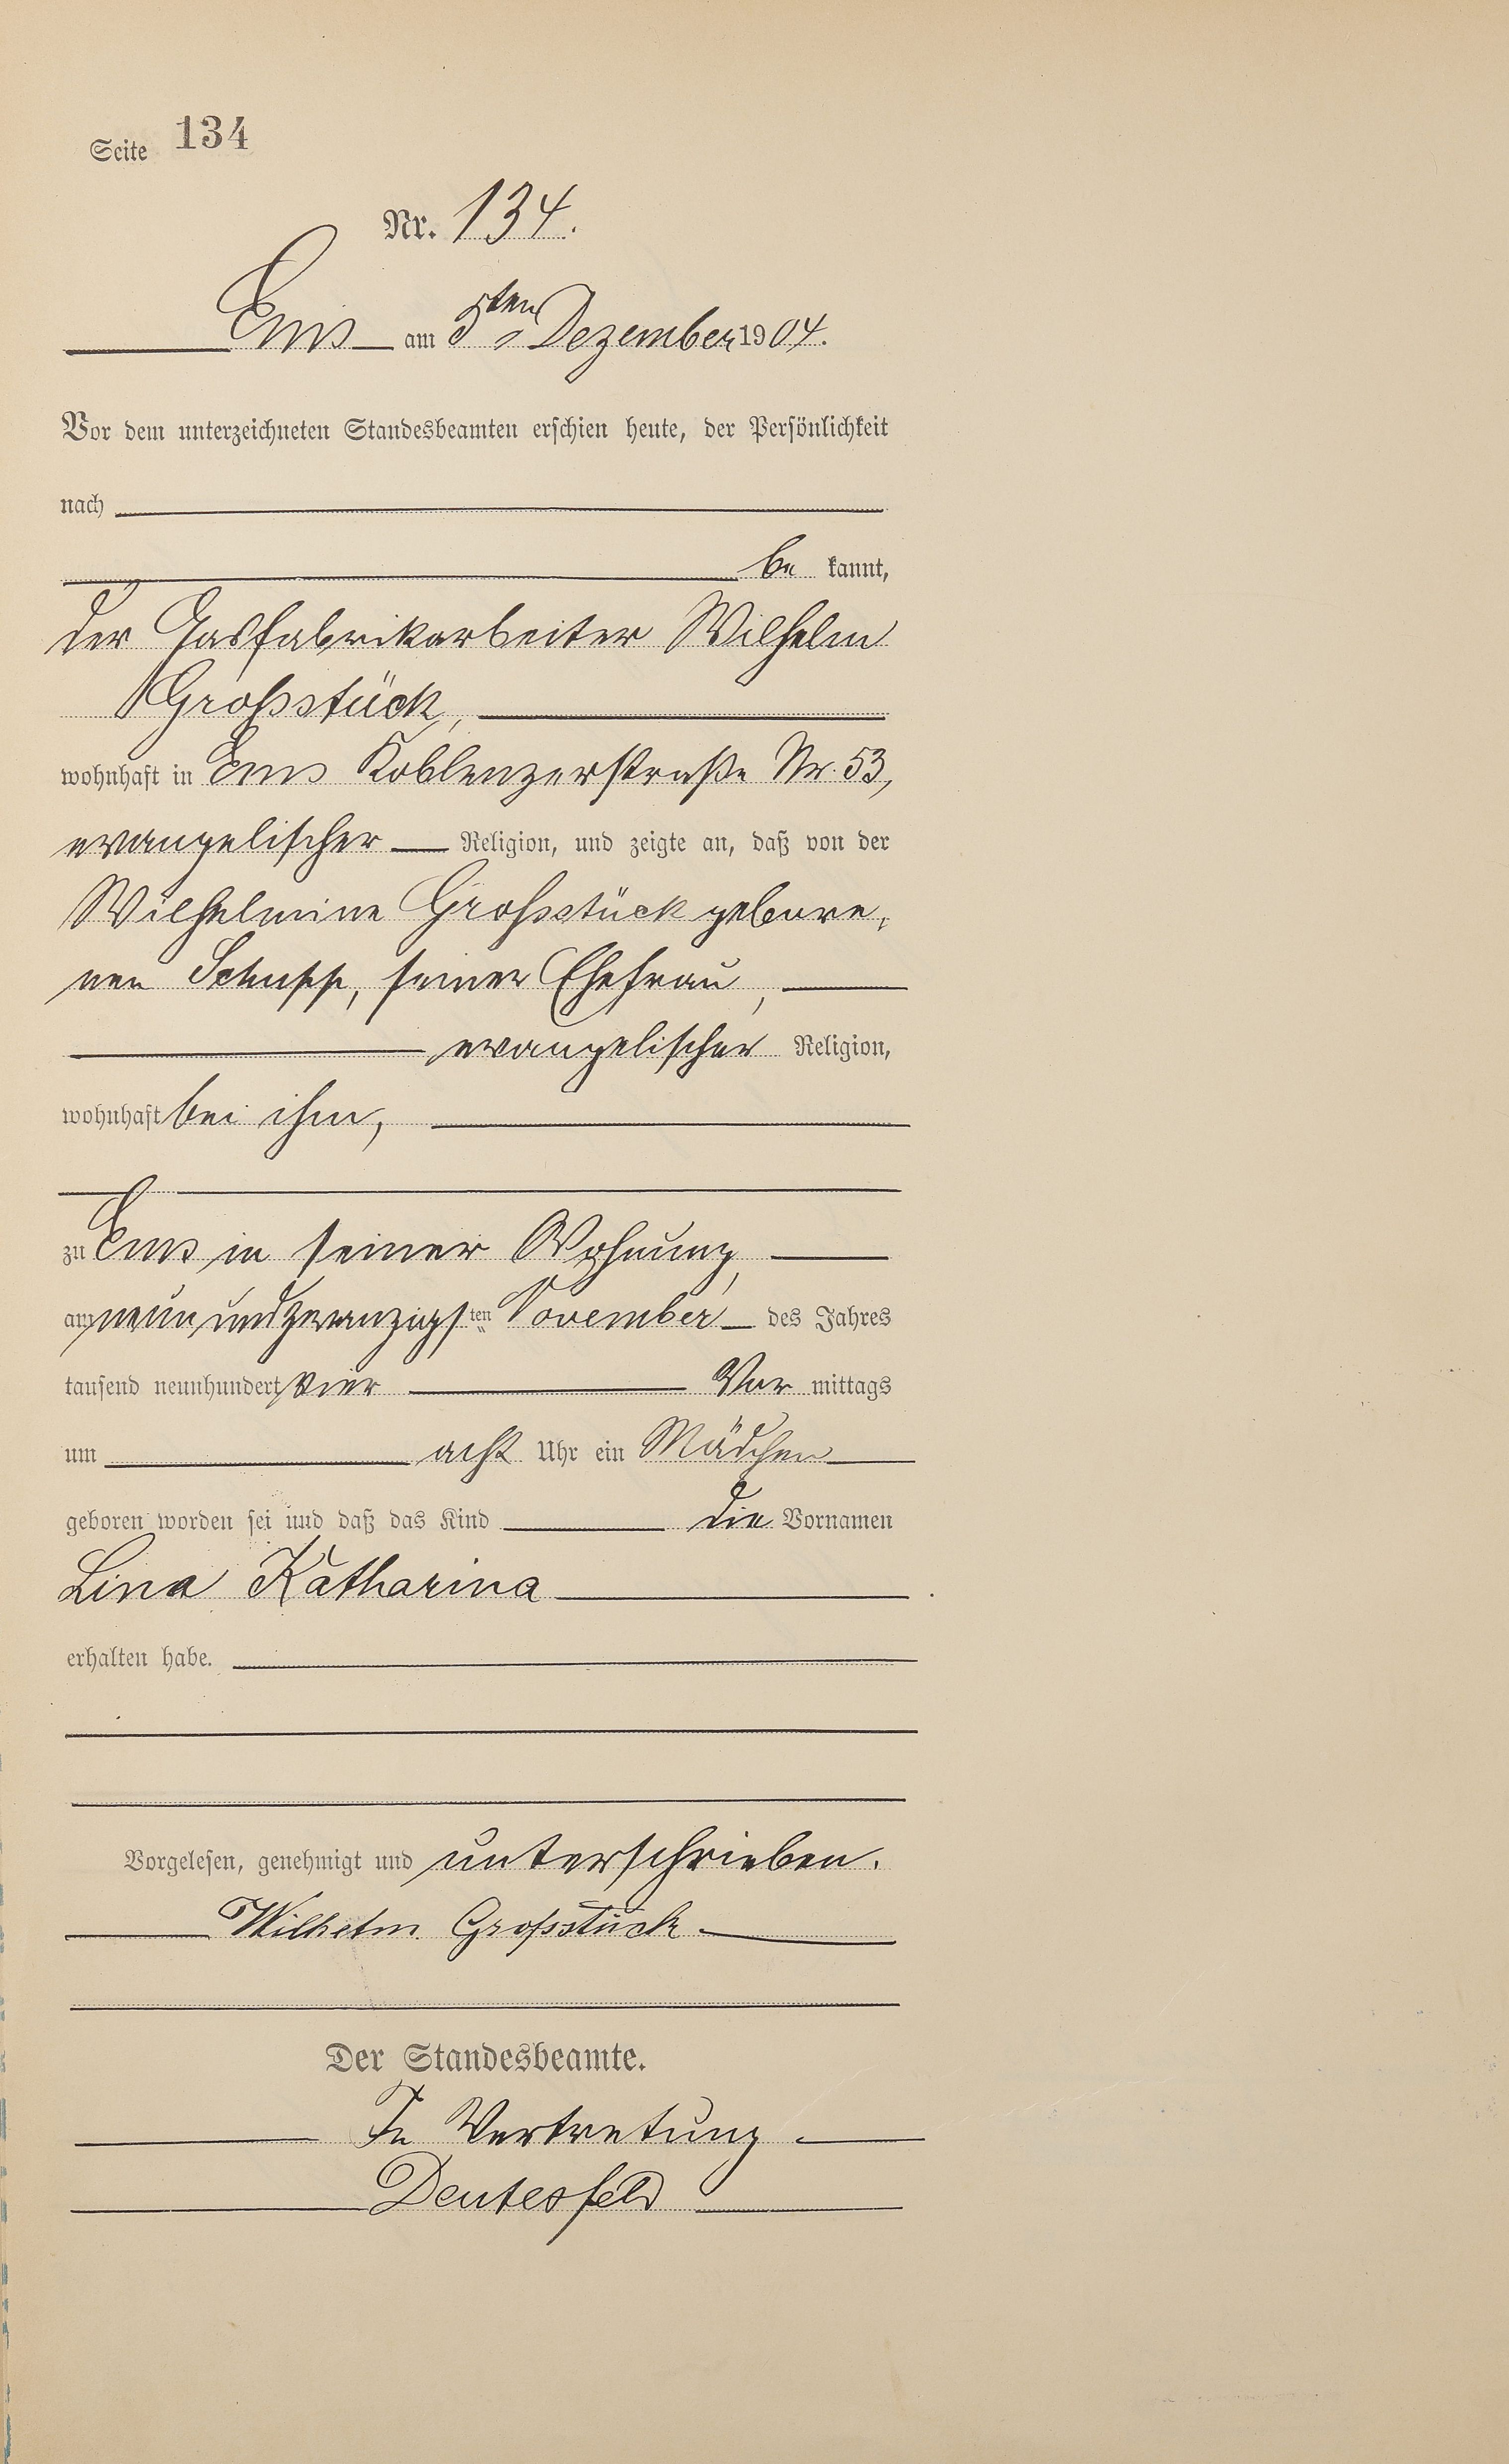 Seite 134
Nr. 134.
Ems am 5ten Dezember 1904.
Vor dem unterzeichneten Standesbeamten erschien heute, der Persönlichkeit
nach
be kannt,
der Gasfabrikarbeiter Wilhelm
Großstück,
wohnhaft in Ems Koblenzerstraße Nr. 53,
evangelischer Religion, und zeigte an, daß von der
Wilhelmine Großstück gebore-
nen Schupp, seiner Ehefrau,
evangelischer Religion,
wohnhaft bei ihm,
zu Ems in seiner Wohnung,
am neun und zwanzigsten November des Jahres
tausend neunhundert vier Vor mittags
um acht Uhr ein Mädchen
geboren worden sei und daß das Kind die Vornamen
Lina Katharina
erhalten habe.
Vorgelesen, genehmigt und unterschrieben.
Wilhelm Großstück
Der Standesbeamte.
In Vertretung.
Deutesfeld